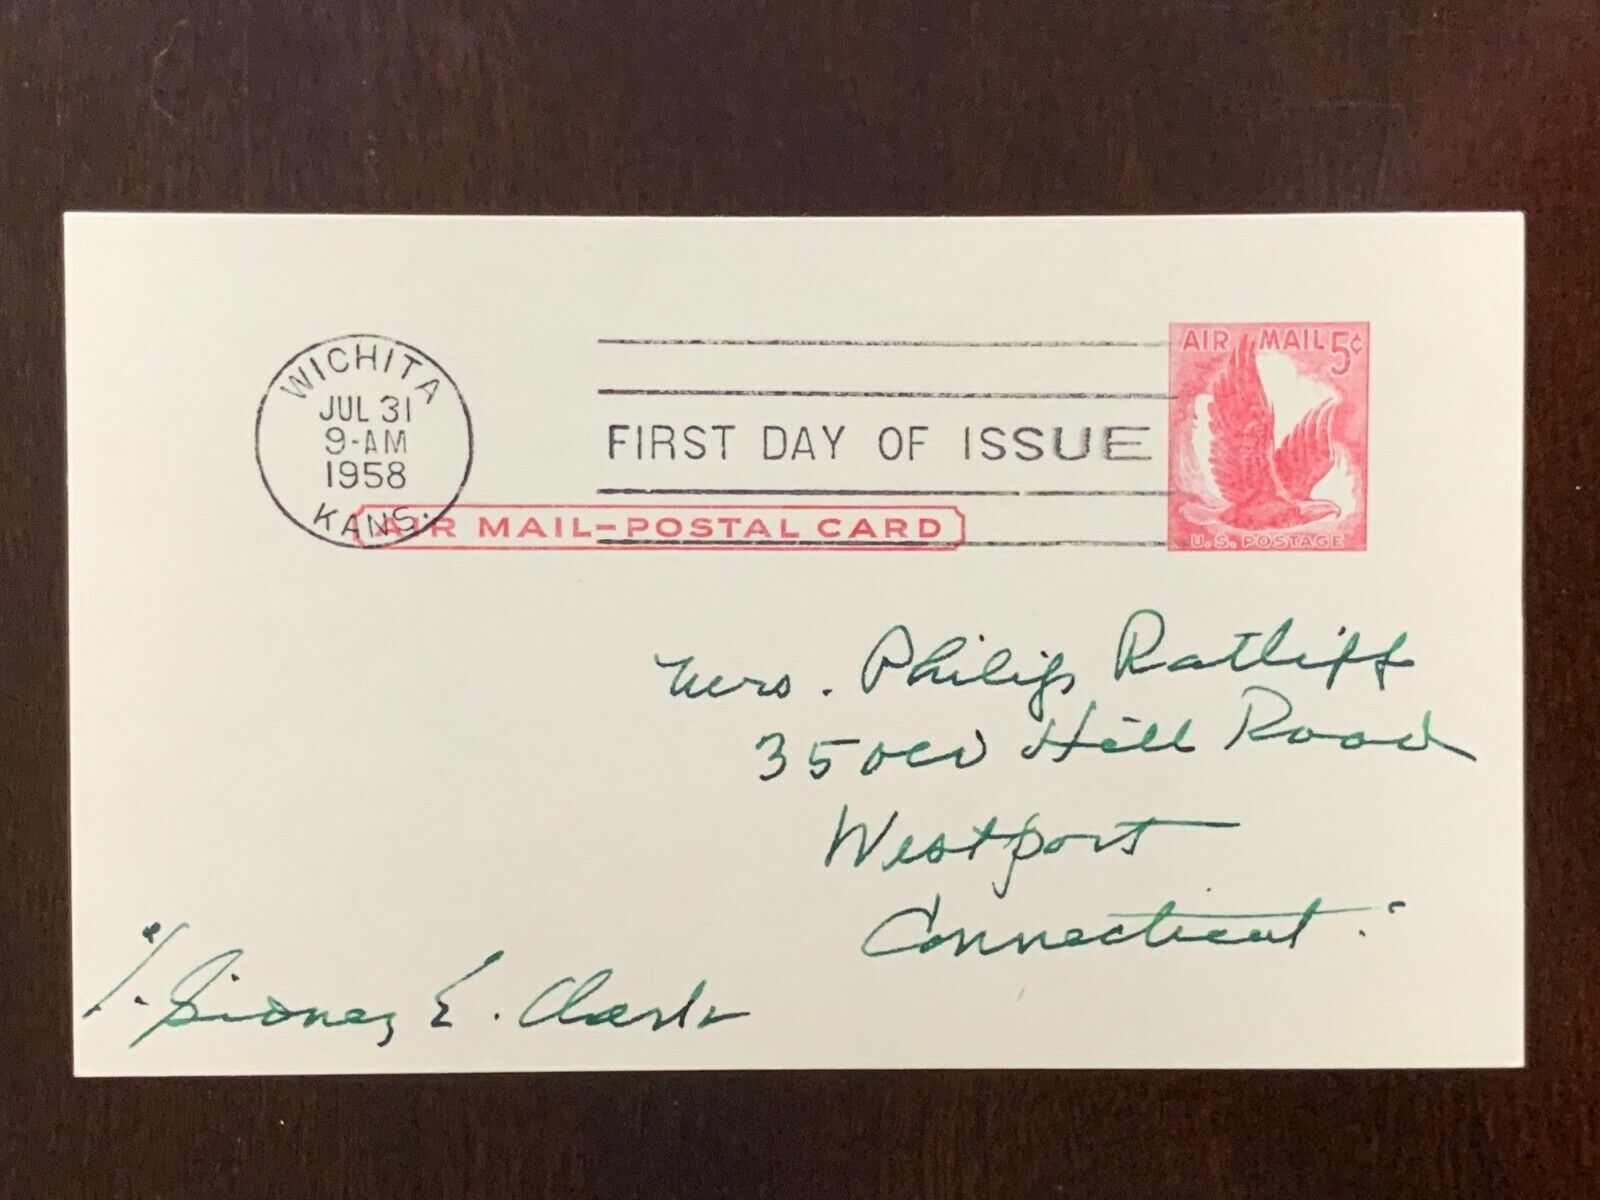 WICHITA
JUL 31
9-AM
1958
KANS.
FIRST DAY OF ISSUE
AIR MAIL 5¢
U.S. POSTAGE
AIR MAIL-POSTAL CARD
Mrs. Philip Ratliff
35 Old Hill Road
Westport
Connecticut.
Sidney E. Clark